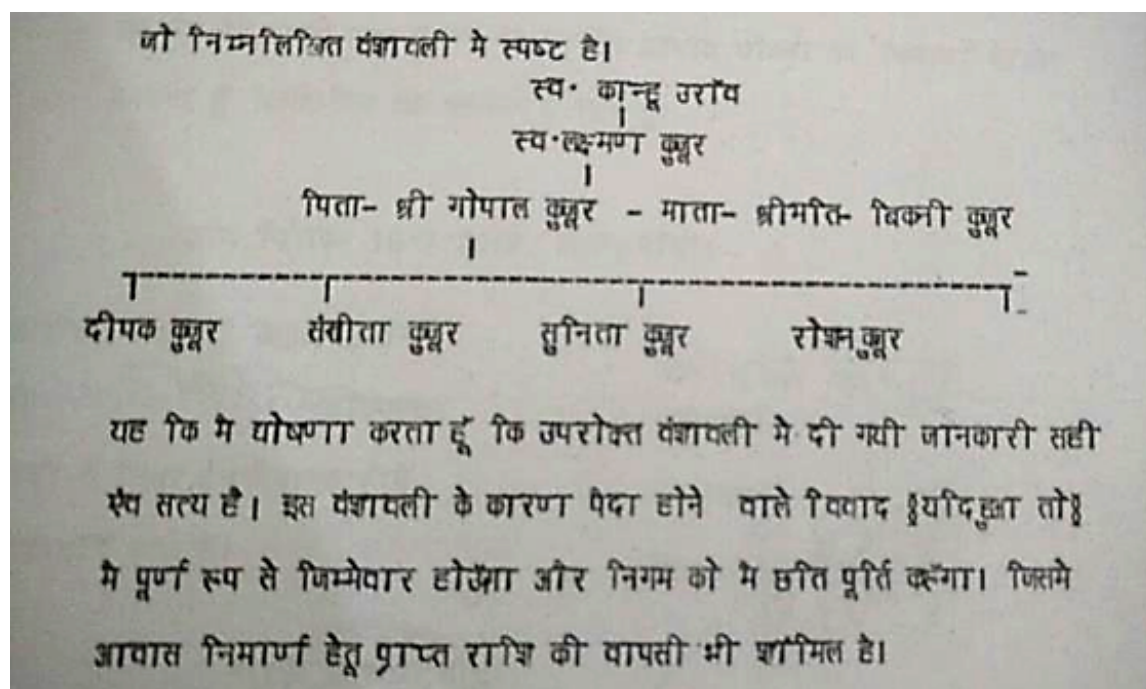 जो निम्नलिखित वंशावली मे स्पष्ट है।
स्व॰ कान्दू उराँव
स्व॰लक्ष्मण कुजूर
पिता- श्री गोपाल कुजूर - माता- श्रीमति- विकनी कुजूर
दीपक कुजूर संगीता कुजूर सुनिता कुजूर रोशन कुजूर
यह कि मै घोषणा करता हूँ कि उपरोक्त वंशावली मे दी गयी जानकारी सही
एंव सत्य है। इस वंशावली के कारण पैदा होने वाले विवाद §यदि हुआ तो§
मै पूर्ण रूप से जिम्मेवार होऊँगा और निगम को मै छति पूर्ति करूँगा। जिसमे
आवास निमार्ण हेतू प्राप्त राशि की वापसी भी शामिल है।